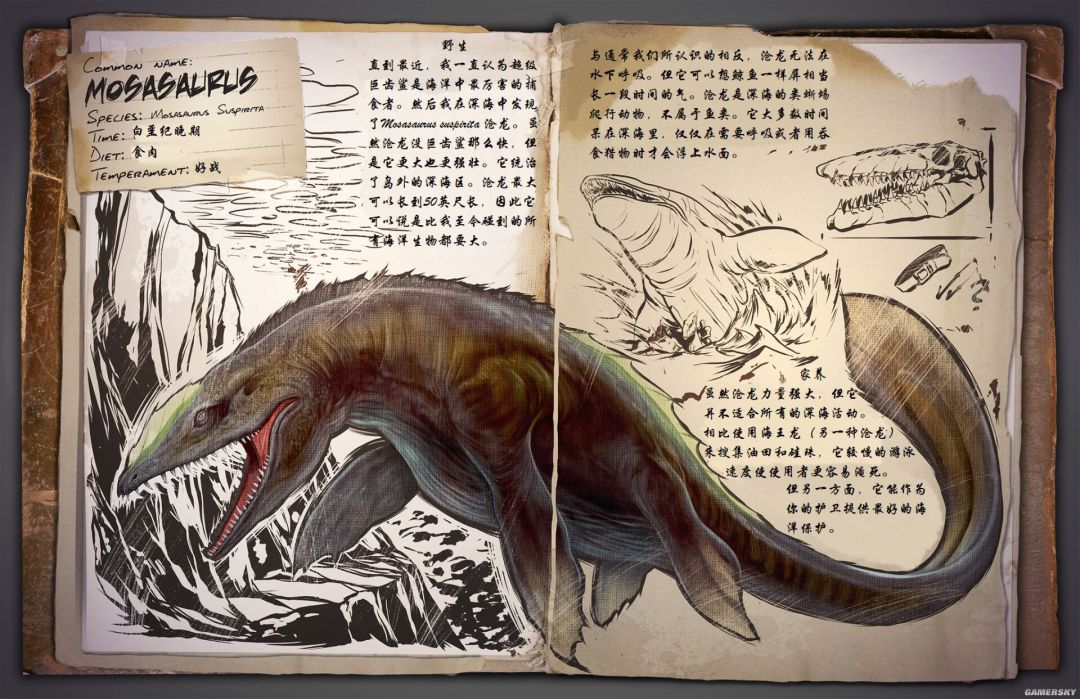 COMMON NAME:
MOSASAURUS
SPECIES: MOSASAURUS SUSPIRITA
TIME: 白垩纪晚期
DIET: 食肉
TEMPERAMENT: 好战
野生
直到最近，我一直认为超级
巨齿鲨是海洋中最厉害的捕
食者。然后我在深海中发现
了Mosasaurus suspirita 沧龙。虽
然沧龙没巨齿鲨那么快，但
是它更大也更强壮。它统治
了岛外的深海区。沧龙最大
可以长到50英尺长，因此它
可以说是比我至今碰到的所
有海洋生物都要大。
与通常我们所认识的相反，沧龙无法在
水下呼吸。但它可以想鲸鱼一样屏相当
长一段时间的气。沧龙是深海的类蜥蜴
爬行动物，不属于鱼类。它大多数时间
呆在深海里，仅仅在需要呼吸或者用吞
食猎物时才会浮上水面。
家养
虽然沧龙力量强大，但它
并不适合所有的深海活动。
相比使用海王龙（另一种沧龙）
来搜集油田和硅珠，它轻慢的游泳
速度使使用者更容易淹死。
但另一方面，它能作为
你的护卫提供最好的海
洋保护。
GAMERSKY